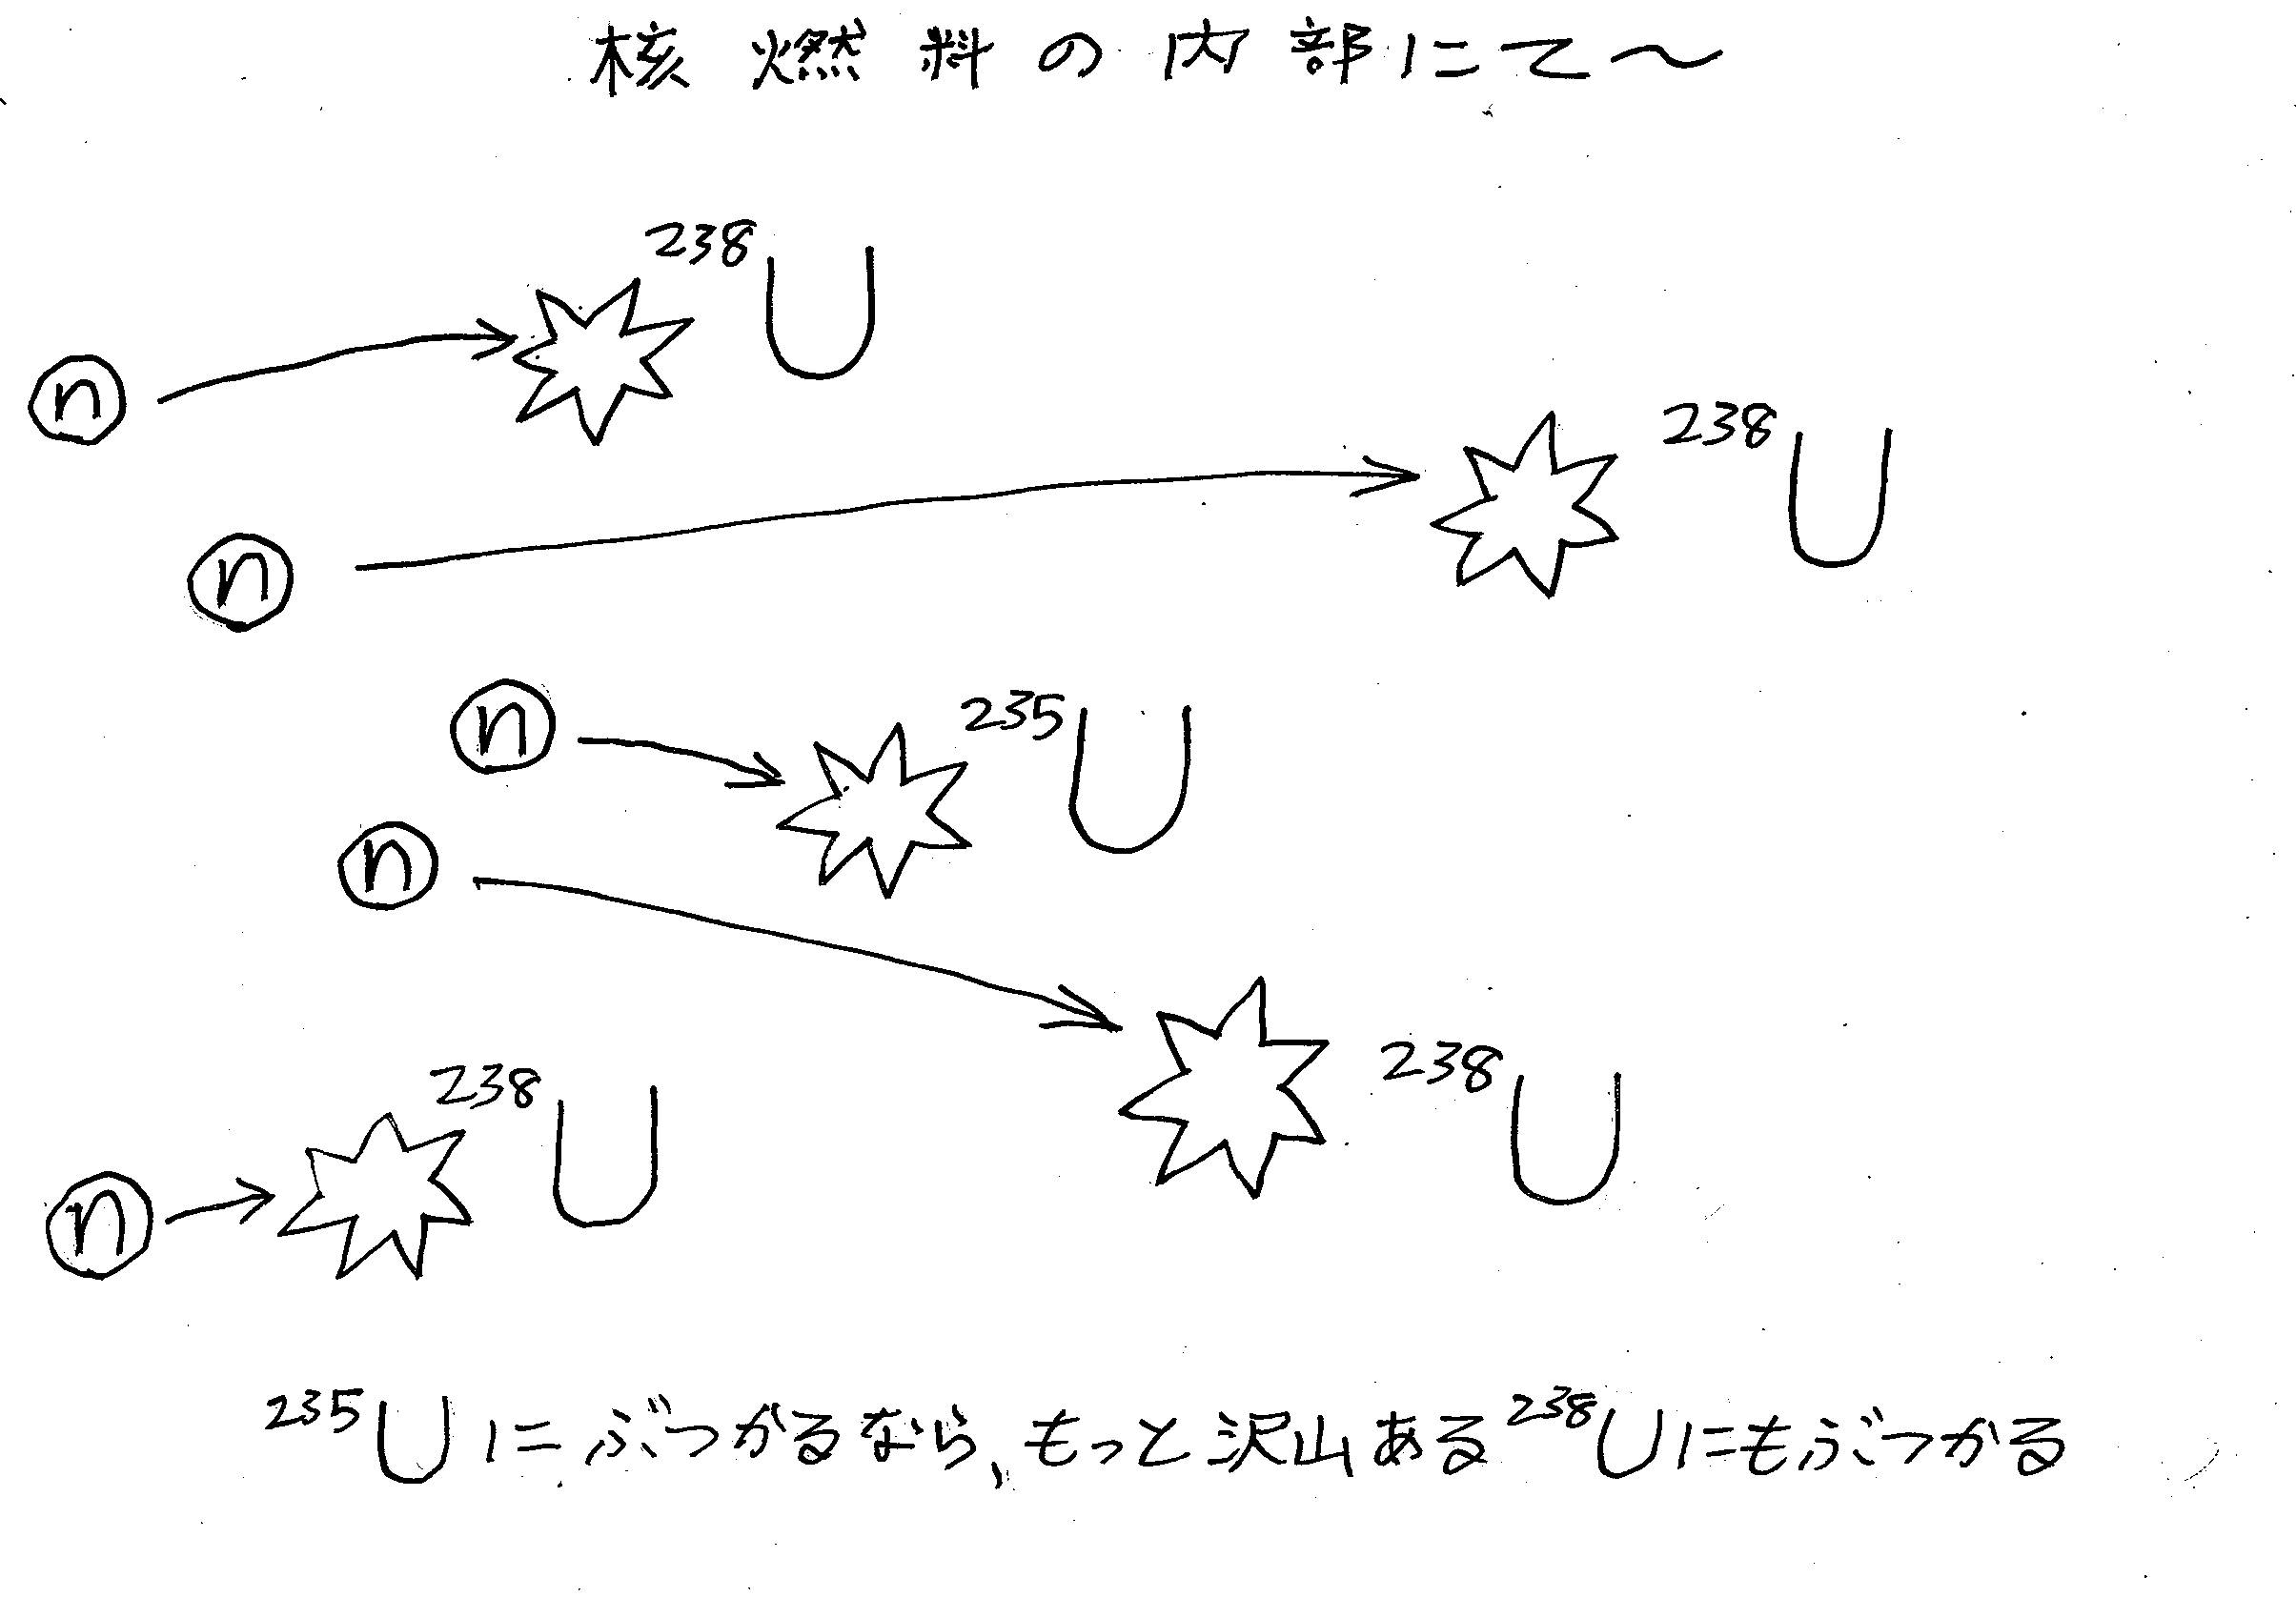 核燃料の内部にて～
²³⁸U
n
²³⁸U
n
n
²³⁵U
n
²³⁸U
²³⁸U
n
²³⁵Uにぶつかるなら、もっと沢山ある²³⁸Uにもぶつかる